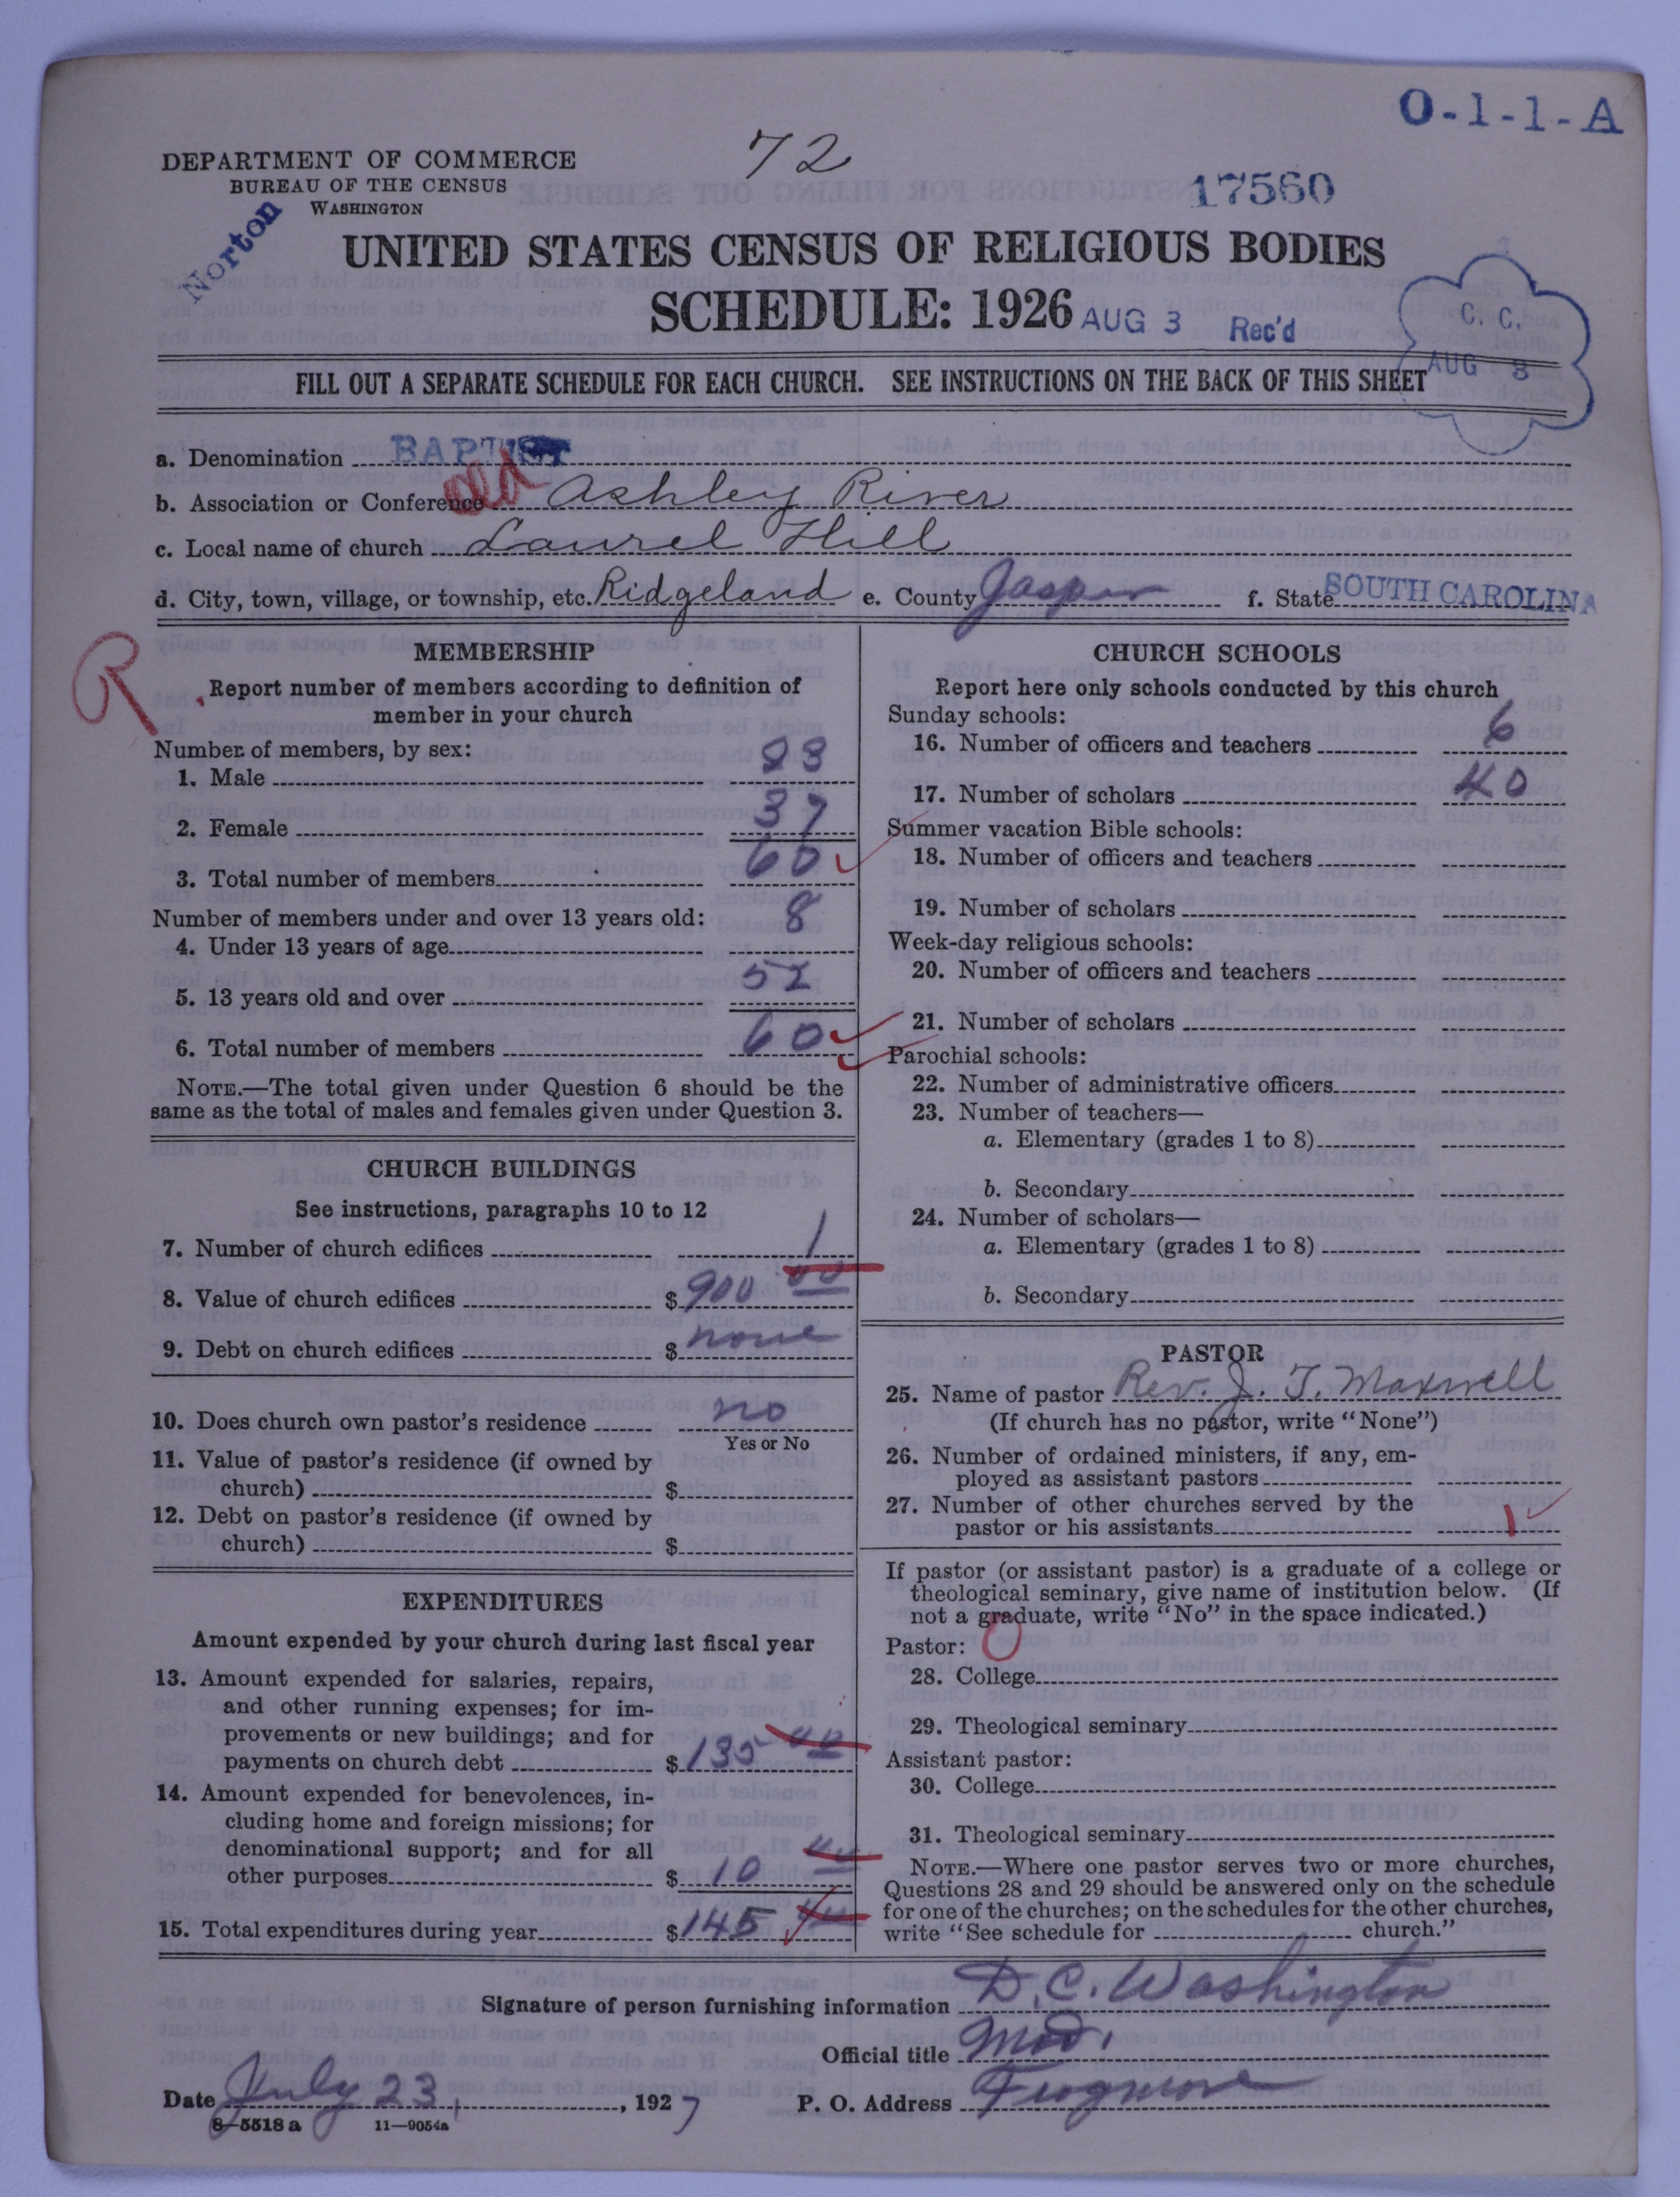 O-1-1-A
72
DEPARTMENT OF COMMERCE
BUREAU OF THE CENSUS
WASHINGTON
17560
Norton
UNITED STATES CENSUS OF RELIGIOUS BODIES
SCHEDULE: 1926 AUG 3 Rec'd
C. C.
AUG 8
FILL OUT A SEPARATE SCHEDULE FOR EACH CHURCH. SEE INSTRUCTIONS ON THE BACK OF THIS SHEET
a. Denomination BAPTIST
b. Association or Conference old Ashley River
c. Local name of church Laurel Hill
d. City, town, village, or township, etc. Ridgeland e. County Jasper f. State SOUTH CAROLINA
R
MEMBERSHIP
Report number of members according to definition of
member in your church
Number of members, by sex:
1. Male 23
2. Female 37
3. Total number of members 60
Number of members under and over 13 years old:
4. Under 13 years of age 8
5. 13 years old and over 52
6. Total number of members 60
NOTE.—The total given under Question 6 should be the
same as the total of males and females given under Question 3.
CHURCH BUILDINGS
See instructions, paragraphs 10 to 12
7. Number of church edifices 1
8. Value of church edifices $900 00
9. Debt on church edifices $ none
10. Does church own pastor's residence no
Yes or No
11. Value of pastor's residence (if owned by
church) $
12. Debt on pastor's residence (if owned by
church) $
EXPENDITURES
Amount expended by your church during last fiscal year
13. Amount expended for salaries, repairs,
and other running expenses; for im-
provements or new buildings; and for
payments on church debt $135 00
14. Amount expended for benevolences, in-
cluding home and foreign missions; for
denominational support; and for all
other purposes $10 00
15. Total expenditures during year $145 00
CHURCH SCHOOLS
Report here only schools conducted by this church
Sunday schools:
16. Number of officers and teachers 6
17. Number of scholars 40
Summer vacation Bible schools:
18. Number of officers and teachers
19. Number of scholars
Week-day religious schools:
20. Number of officers and teachers
21. Number of scholars
Parochial schools:
22. Number of administrative officers
23. Number of teachers—
a. Elementary (grades 1 to 8)
b. Secondary
24. Number of scholars—
a. Elementary (grades 1 to 8)
b. Secondary
PASTOR
25. Name of pastor Rev. J. T. Maxwell
(If church has no pastor, write "None")
26. Number of ordained ministers, if any, em-
ployed as assistant pastors
27. Number of other churches served by the
pastor or his assistants 1
If pastor (or assistant pastor) is a graduate of a college or
theological seminary, give name of institution below. (If
not a graduate, write "No" in the space indicated.)
Pastor: 0
28. College
29. Theological seminary
Assistant pastor:
30. College
31. Theological seminary
NOTE.—Where one pastor serves two or more churches,
Questions 28 and 29 should be answered only on the schedule
for one of the churches; on the schedules for the other churches,
write "See schedule for church."
Signature of person furnishing information D. C. Washington
Official title Mod.
Date July 23, 1927 P. O. Address Frogmore
8-5518a 11-9054a